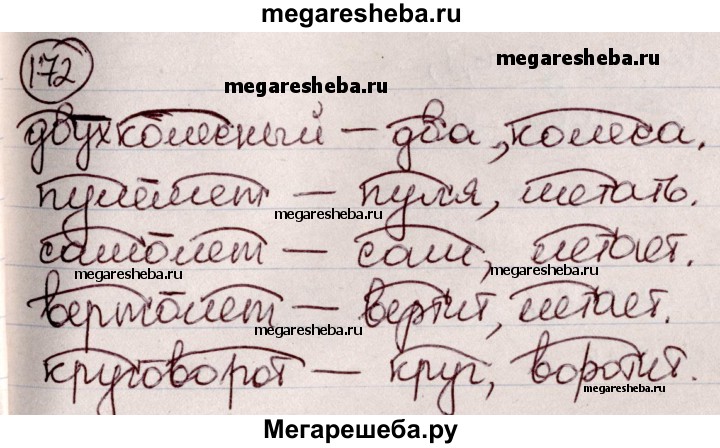 megaresheba.ru
172
megaresheba.ru
megaresheba.ru
двухколесный – два, колеса.
пулемёт – пуля, метать.
megaresheba.ru
самолет – сам, летает.
megaresheba.ru
megaresheba.ru
вертолет – вертит, летает.
megaresheba.ru
круговорот – круг, воротит.
megaresheba.ru
Мегарешеба.ру